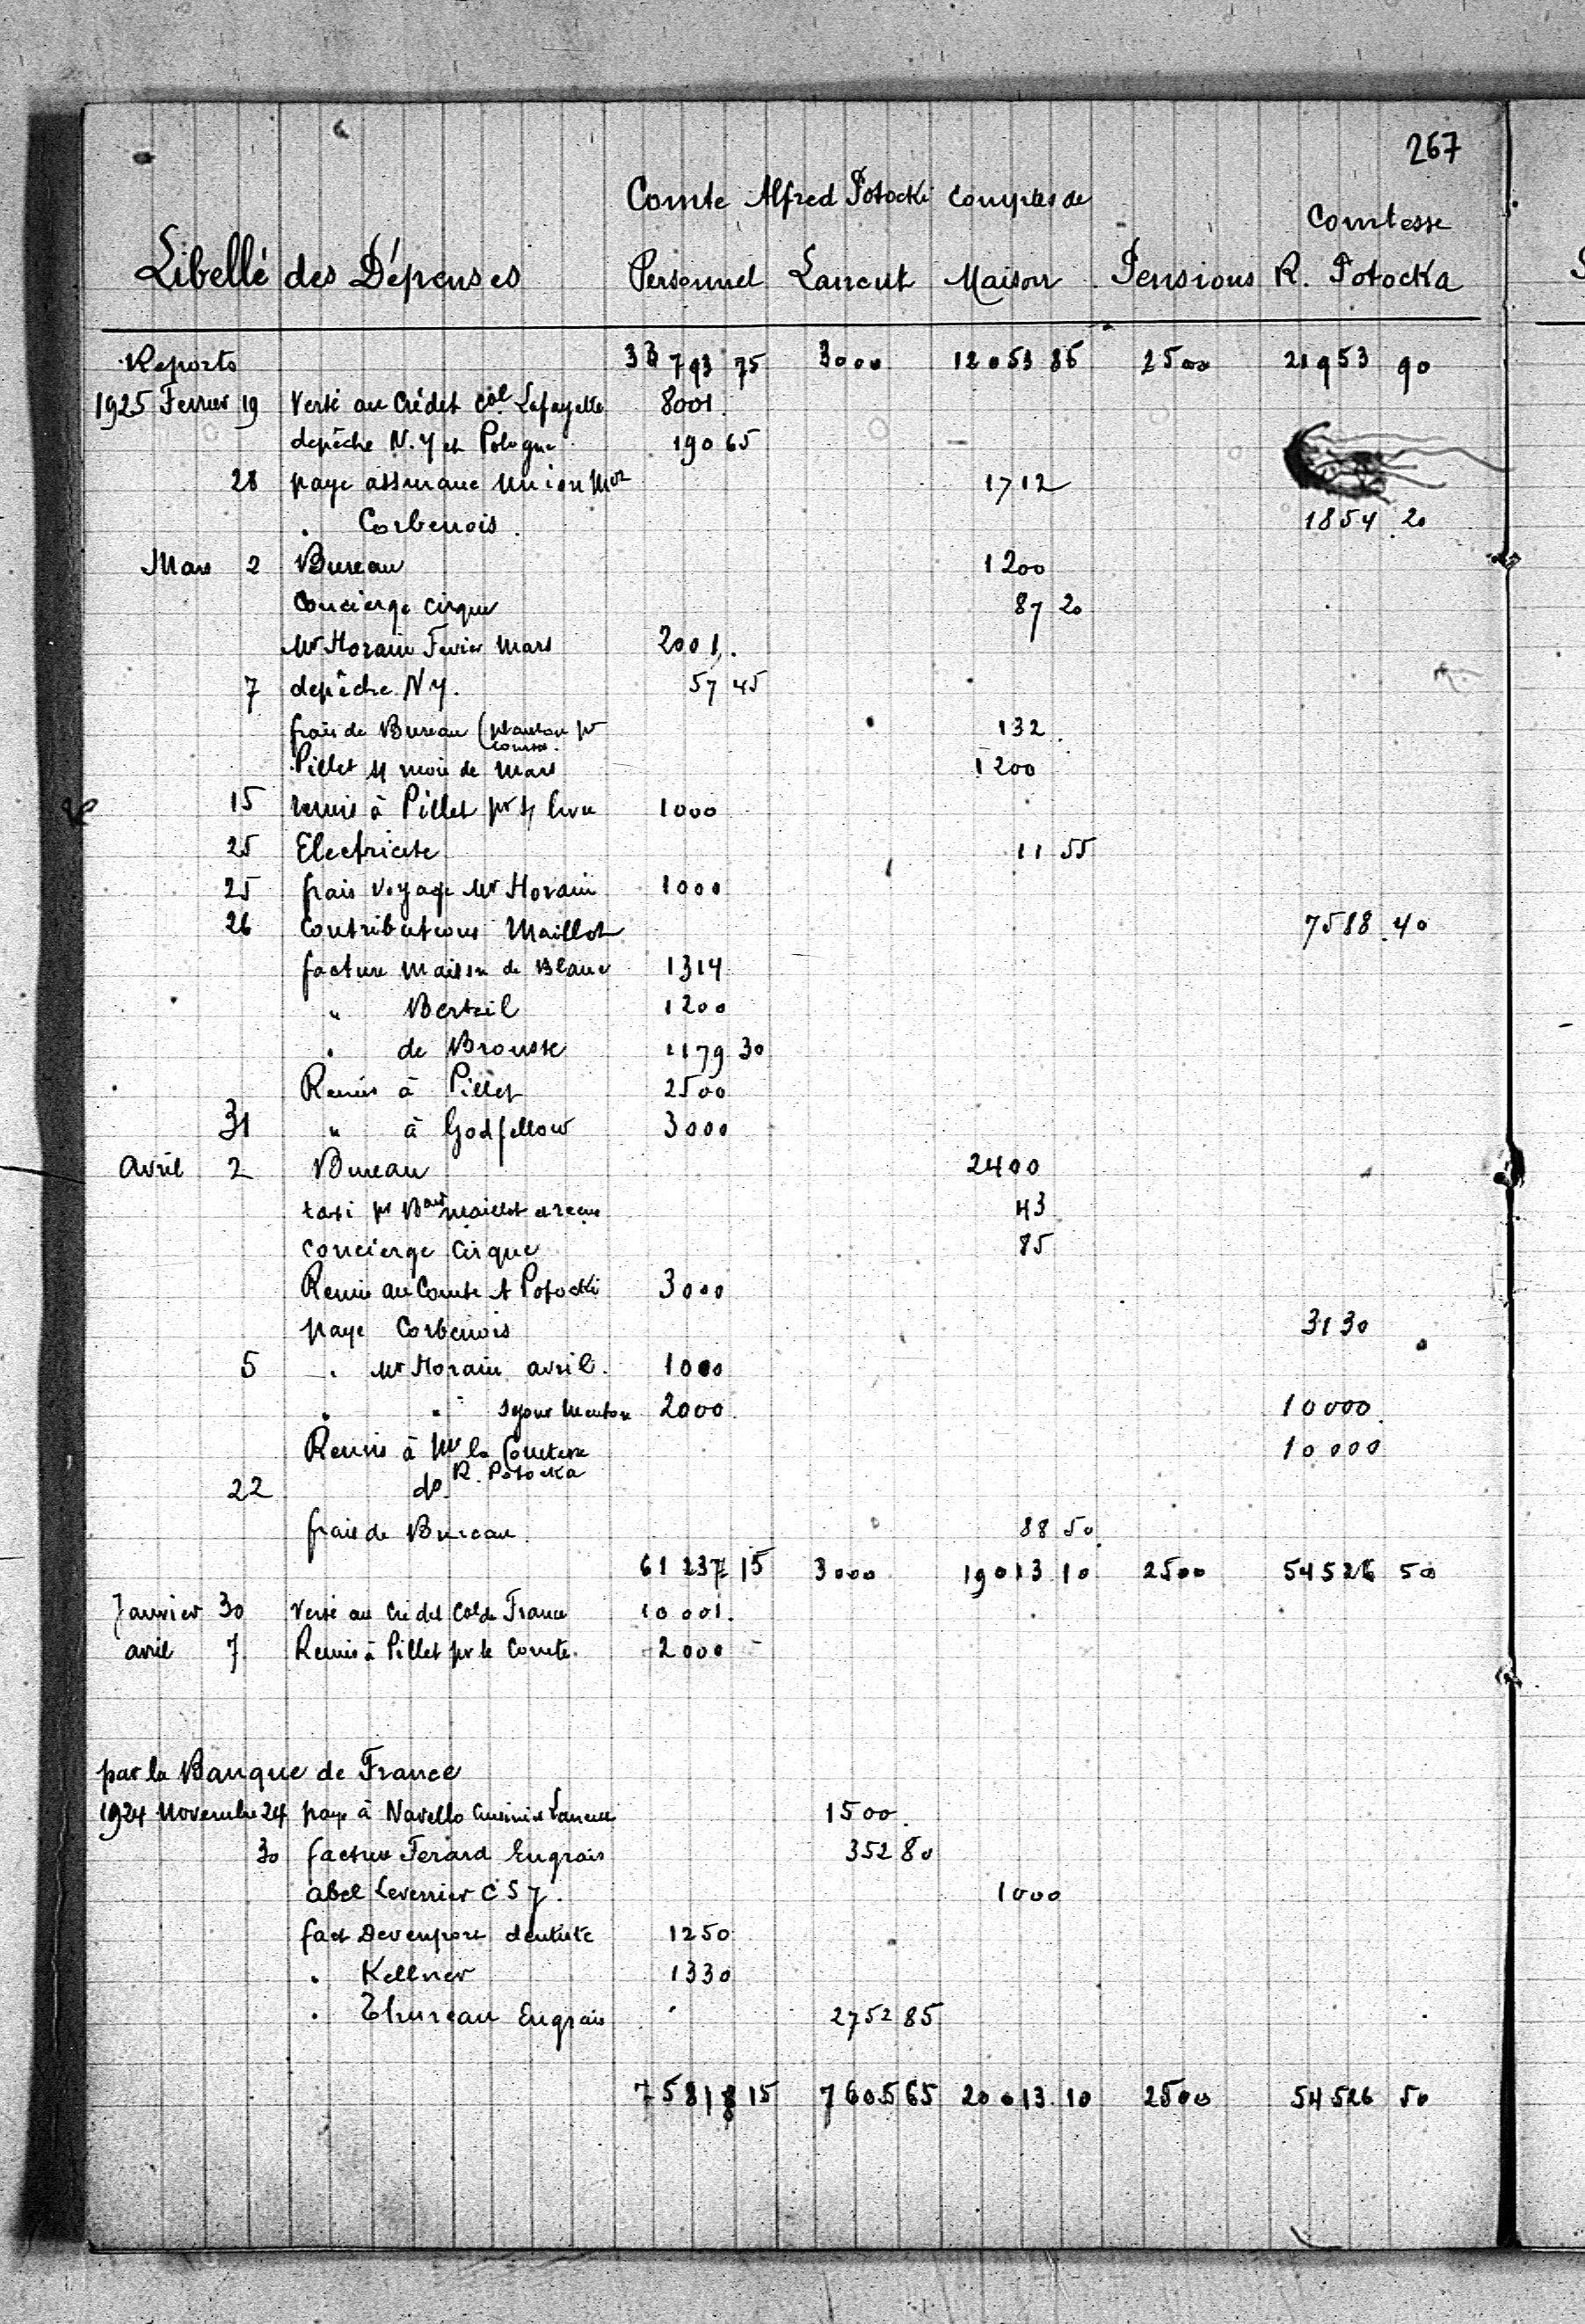 267
Comte Alfred Potocki Comptes de
Comtesse
Libellé des Dépenses Personnel Lancut Maison Pensions R. Potocka
Reports 33793 75 3000 12053 85 2500 21953 90
1925 Fevrier 19 Versé au Crédit Col Lafayette 8001
depêche N.Y et Pologne 190 65
28 paye assurance Union 1712
Corbenois 1854 20
Mars 2 Bureau 1200
Concierge cirque 87 20
Mr Horain Fevier Mars 2001
7 depêche N.Y. 57 45
frais de Bureau ( pr 132
courses
Pillet mois de Mars 1200
15 remis à Pillet pr 1000
25 Electricite 11 55
25 frais voyage Mr Horain 1000
26 Contributions Maillot 7588 40
facture Maison de Blanc 1314
" Berteil 1200
" de Brousse 1179 30
Remis à Pillet 2500
31 " à Godfellow 3000
Avril 2 Bureau 2400
taxi pr Maillot 43
Concierge Cirque 85
Remis au Comte A Potocki 3000
paye Corbenois 3130
5 " Mr Horain avril 1000
" " sejour Menton 2000 10000
Remis à Me la Comtesse 10000
R. Potocka
22 do
frais de Bureau 88 50
61237 15 3000 19013 10 2500 54526 50
Janvier 30 Versé au Crédit Col de France 10001
avril 7 Remis à Pillet pr le Comte 2000
par la Banque de France
1924 Novembre 24 paye à Navello Cuisinier Lancut 1500
30 facture Ferard Engrais 352 80
abel Leverrier C S 7. 1000
fact Devenport dentiste 1250
" Kellner 1330
" Thureau Engrais 2752 85
75818 15 7605 65 20013 10 2500 54526 50